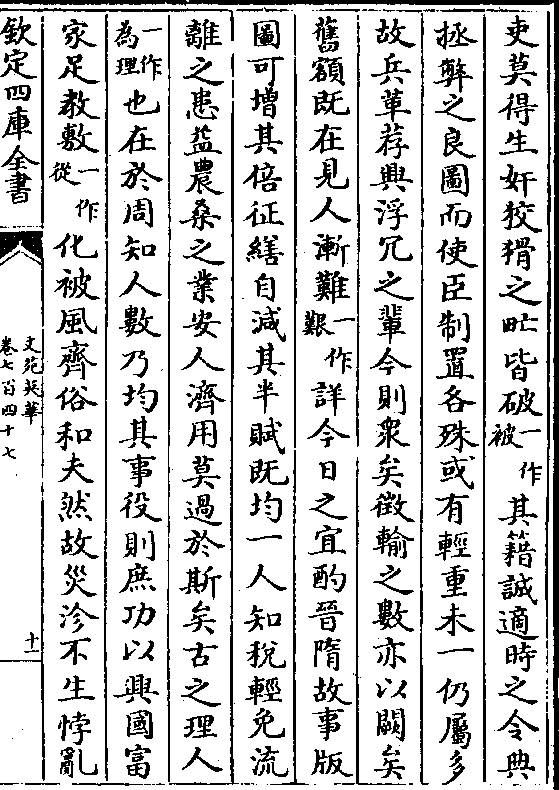 吏莫得生奸狡猾之甿皆破一作被其籍誠適時之令典
拯弊之良圖而使臣制置各殊或有輕重未一仍屬多
故兵革荐興浮冗之輩今則衆矣徵輸之數亦以闕矣
舊額既在見人漸難一作艱詳今日之宜酌晉隋故事版
圖可增其倍征繕自減其半賦既均一人知稅輕免流
離之患益農桑之業安人濟用莫過於斯矣古之理人
一作為理也在於周知人數乃均其事役則庶功以興國富
家足教敷一作從化被風齊俗和夫然故災沴不生悖亂
欽定四庫全書
文苑英華
卷七百四十七
十一